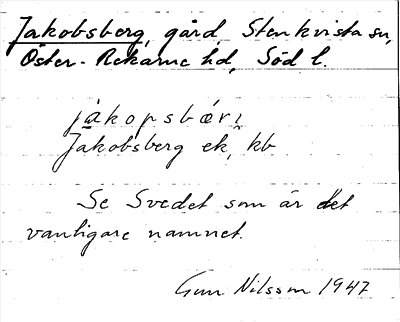 Jakobsberg, gård, Stenkvista sn,
Öster-Rekarne hd, Söd l.
jàkopsbæ̀rị
Jakobsberg ek, kb
Se Svedet som är det
vanligare namnet.
Gun Nilsson 1947